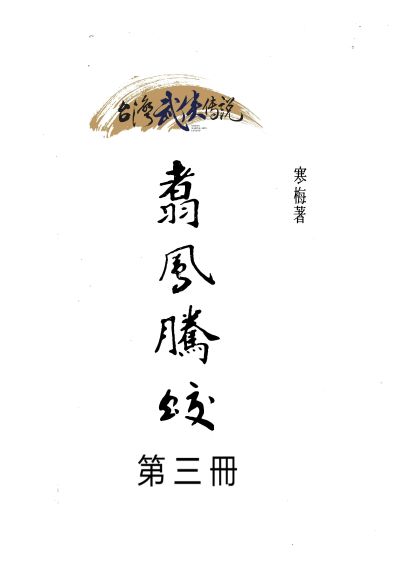 台灣武俠传説
寒梅著
翥鳳騰蛟
第三冊